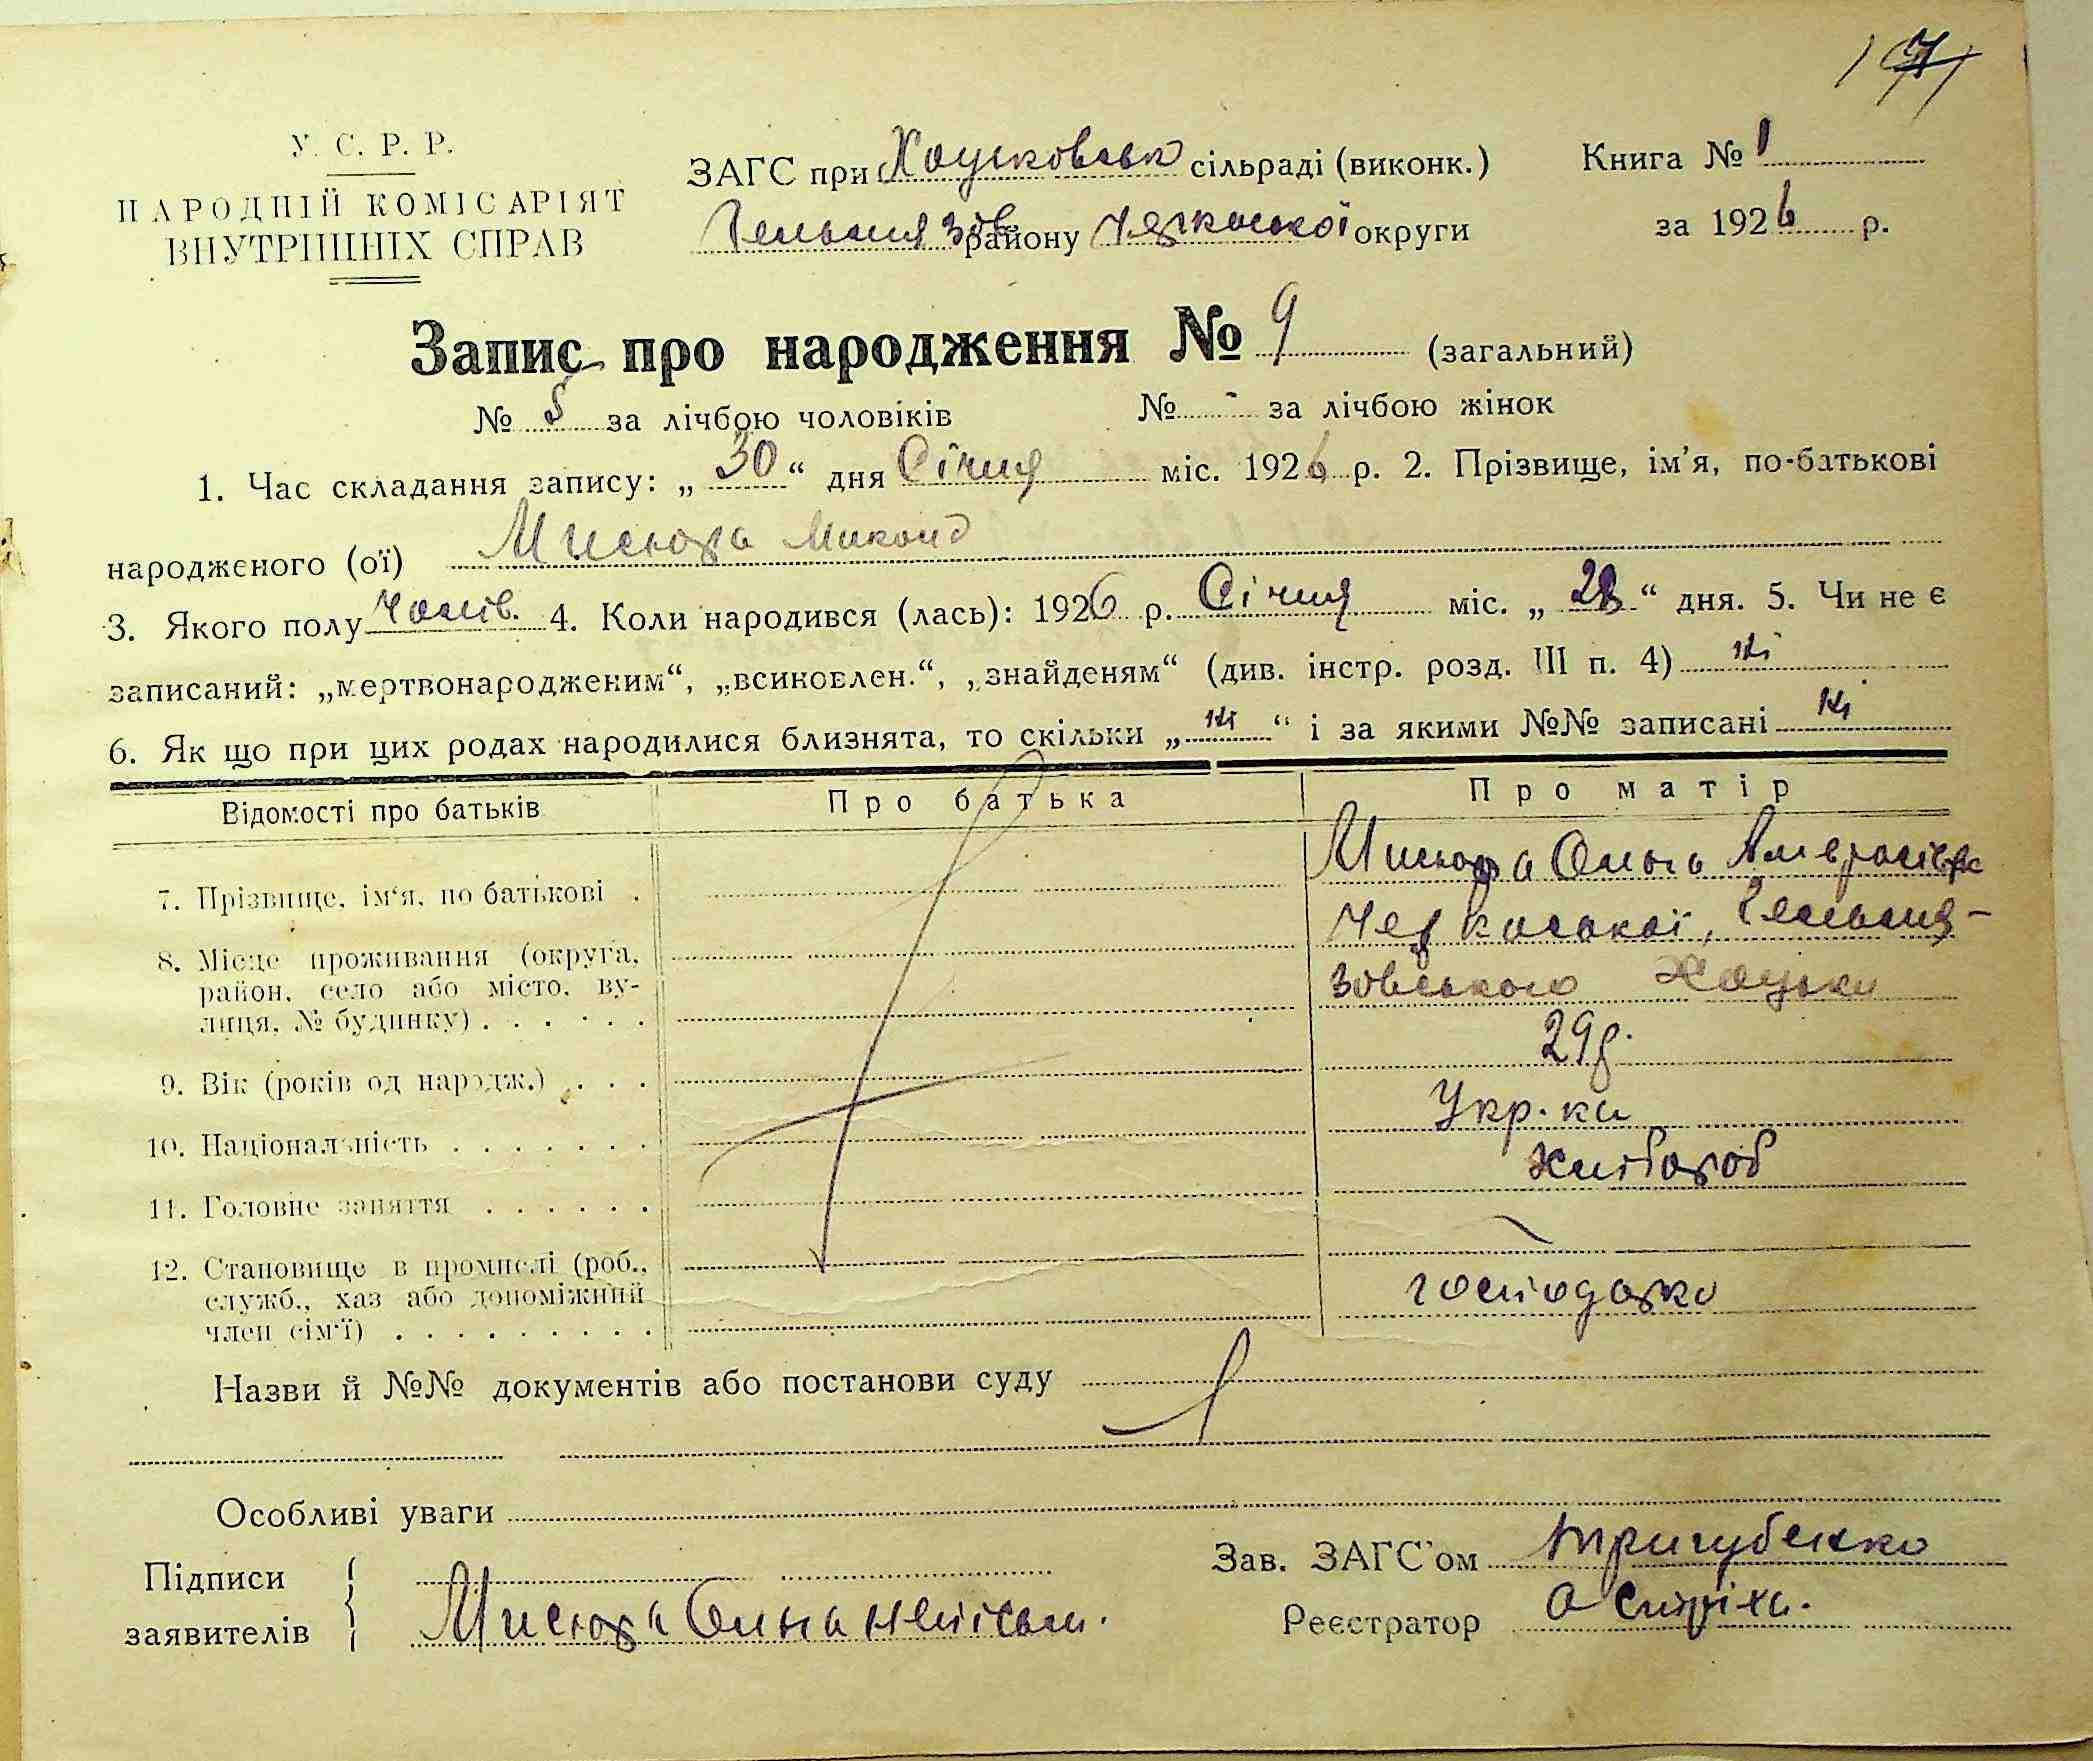 У. С. Р. Р.
НАРОДНІЙ КОМІСАРІЯТ
ВНУТРІШНІХ СПРАВ
ЗАГС при Хоцьковськ сільраді (виконк.)
Гельмязів району Черкаської округи
Книга № 1
за 1926 р.
Запис про народження № 9 (загальний)
№ 5 за лічбою чоловіків № - за лічбою жінок
1. Час складання запису: „ 30 “ дня Січня міс. 1926 р. 2. Прізвище, ім'я, по-батькові
народженого (ої) Мисюра
3. Якого полу Чолів. 4. Коли народився (лась): 1926 р. Січня міс. „ 28 “ дня. 5. Чи не є
записаний: „мертвонародженим“, „всиновлен.“, „знайденям“ (див. інстр. розд. III п. 4) ні
6. Як що при цих родах народилися близнята, то скільки „ ні “ і за якими №№ записані ні
Відомості про батьків Про батька Про матір
7. Прізвище, ім'я, по батькові . Мисюра Ольга Амвросієв
8. Місце проживання (округа, Черкаської, Гельмя-
район, село або місто, ву- зівського Хоцьки
лиця, № будинку) . . . . . .
9. Вік (років од народж.) . . . 29 р.
10. Національність . . . . . . . Укр.ка
11. Головне заняття . . . . . . хлібороб
12. Становище в промислі (роб.,
служб., хаз або допоміжний господарка
член сім'ї) . . . . . . . . .
Назви й №№ документів або постанови суду
Особливі уваги
Підписи
заявителів Мисюра
Зав. ЗАГС'ом Тригубенко
Реєстратор